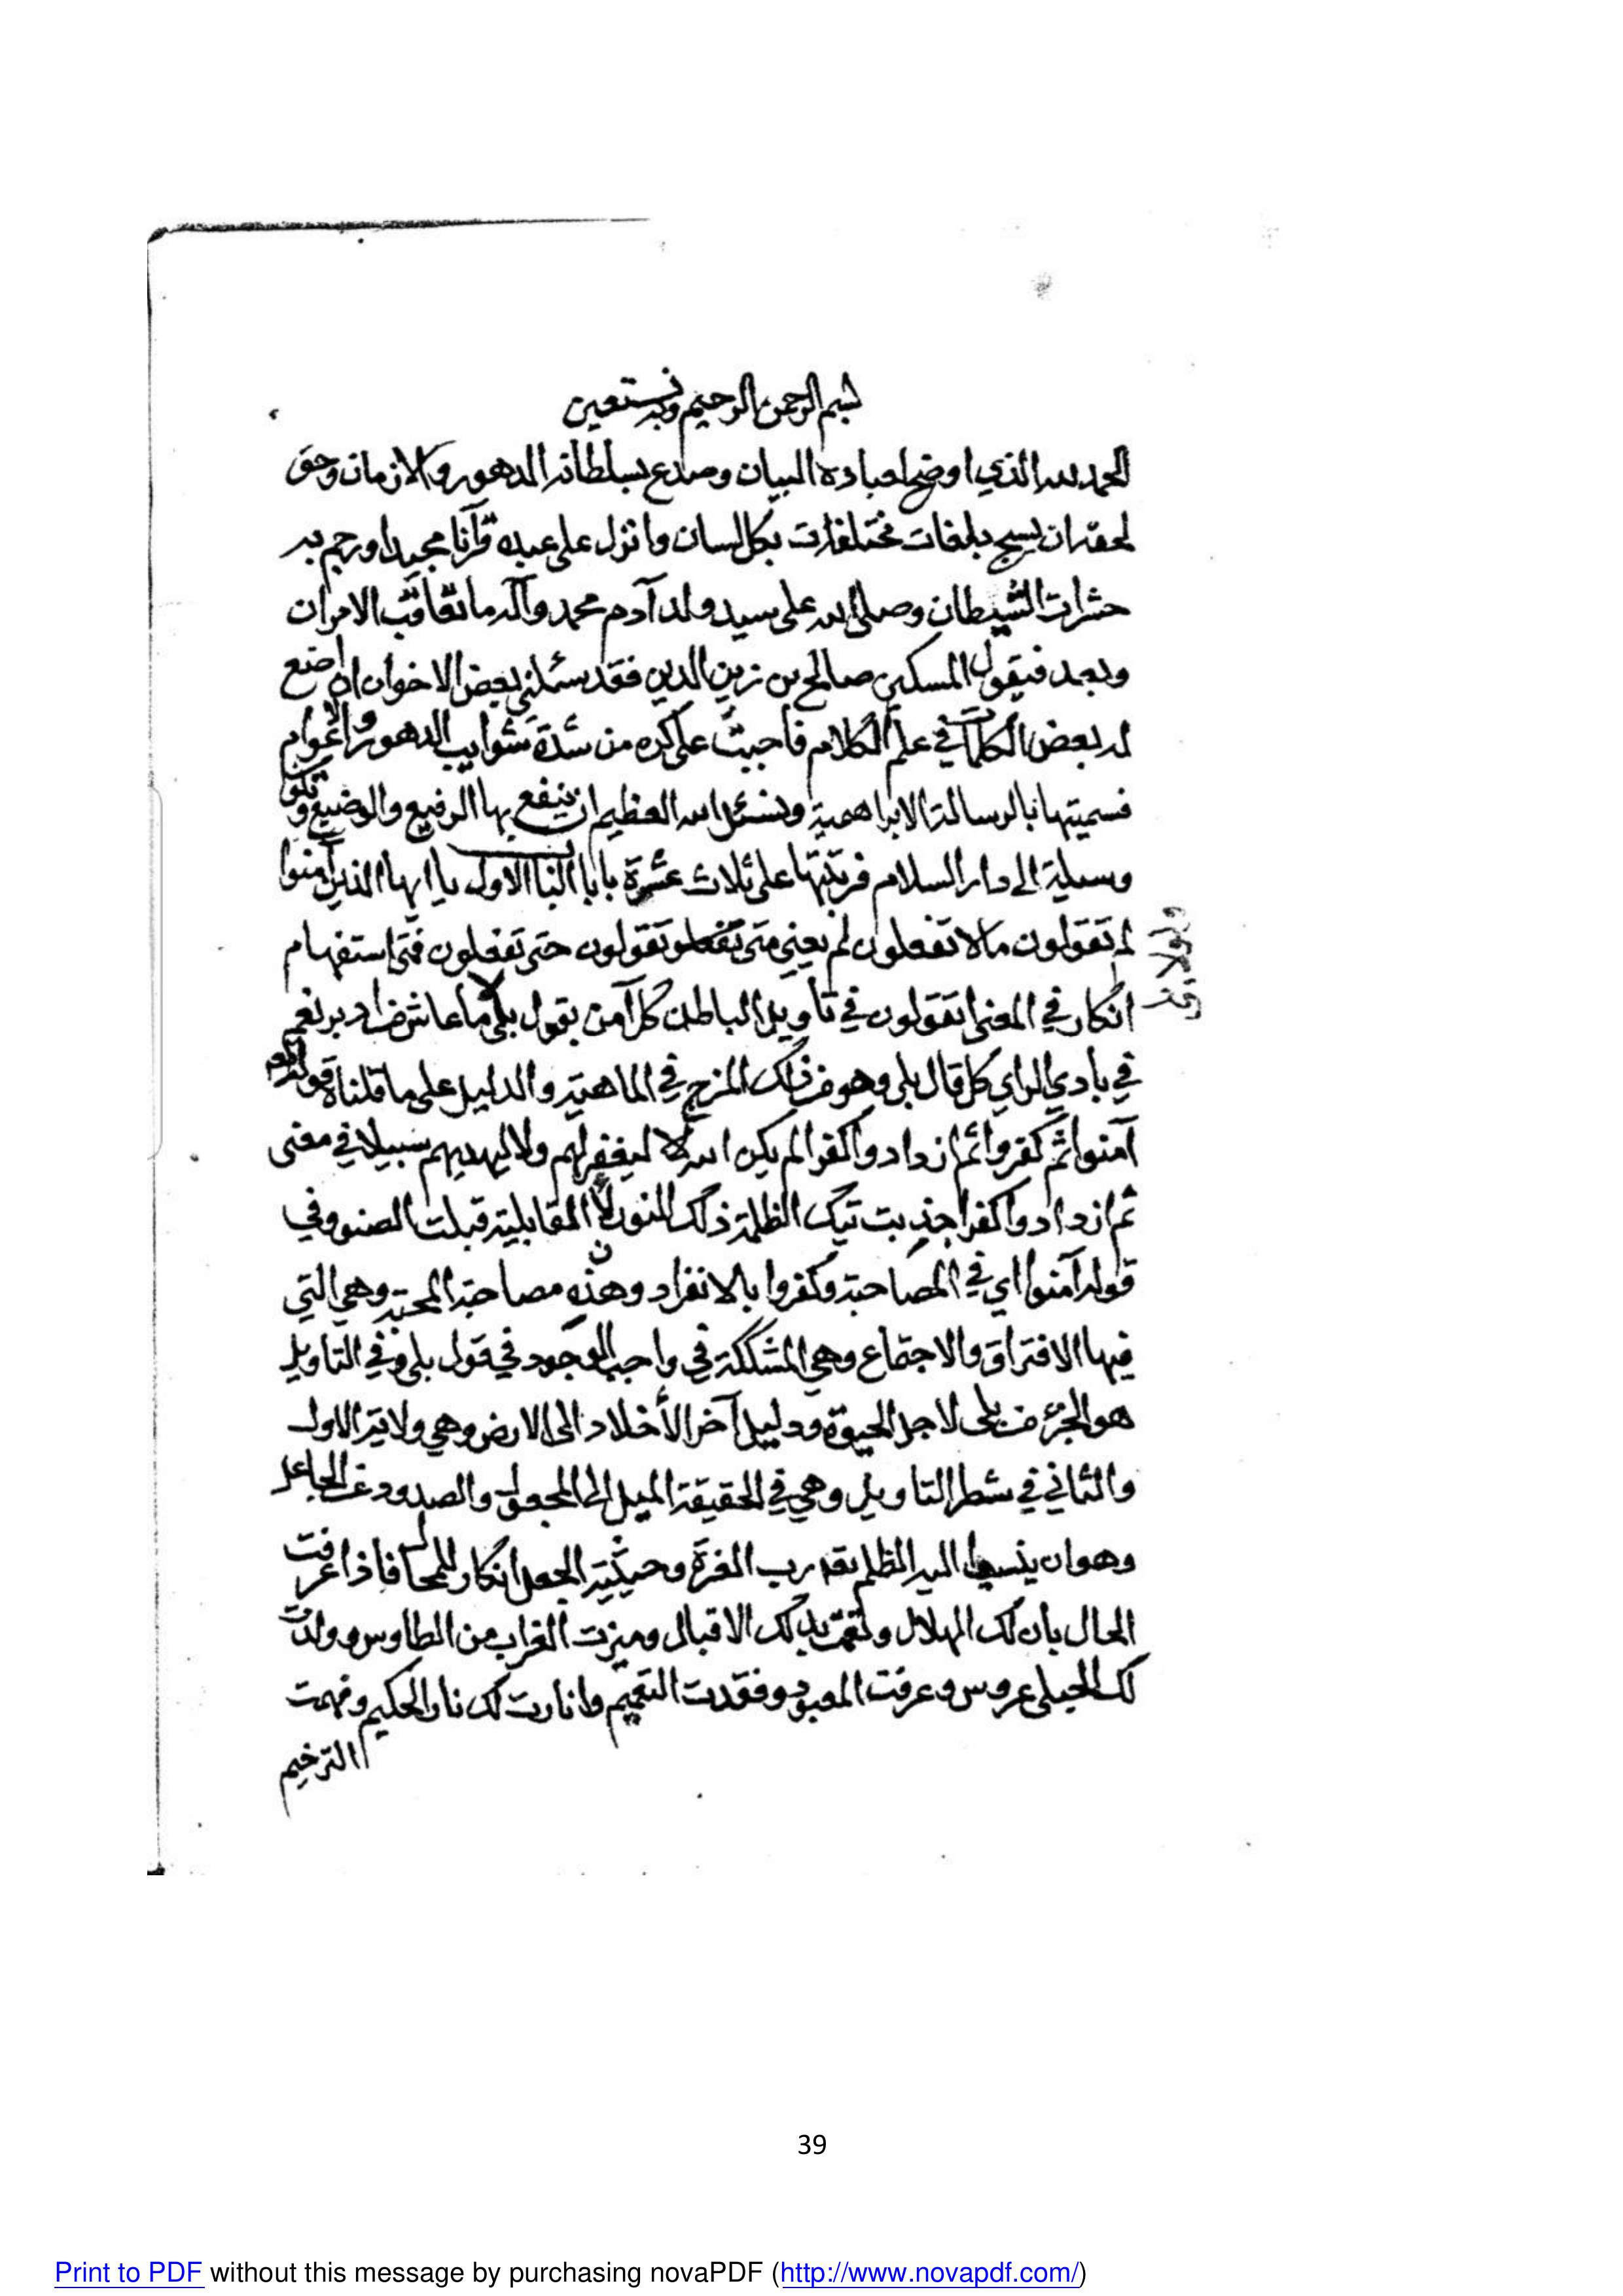 بسم الرحمن الرحيم وبه نستعين
الحمد لله الذي اوضح لعباده البيان وصدع بسلطانه الدهور والازمان وحق
لحقه ان يسبح بلغات مختلفات بكل لسان وانزل على عبده قرآنا مجيدا ورجم به
حشرات الشيطان وصلى الله على سيد ولد آدم محمد وآله ما تعاقب الامران
وبعد فيقول المسكين صالح بن زين الدين فقد سئلني بعض الاخوان ان اضع
له بعض الكلمات في علم الكلام فأجبت على كره من شدة شوايب الدهور والاعوام
فسميتها بالرسالة الابراهمية ونسئل الله العظيم ان ينفع بها الرفيع والوضيع وتكون
وسيلة الى دار السلام فرتبتها على ثلاث عشرة بابا الباب الاول يا ايها الذين آمنوا
لم تقولون ما لا تفعلون لم يعني متى تقولون حتى تفعلون فمتى استفهام
انكار في المعنى اتقولون في تأويل الباطل كل آمن بقول بلى ما عاش نعم
في بادي الراي كل قال بلى وهو من ذلك المزج في الماهية والدليل على ما قلناه قوله
آمنوا ثم كفروا ثم ازدادوا كفرا لم يكن الله ليغفر لهم ولا ليهديهم سبيلا في معنى
ثم ازدادوا كفرا جذبت تيك الظلمة ذلك النور لأن المقابلية قبلت الصنو وفي
قوله آمنوا اي في المصاحبة وكفروا بالانفراد وهذه مصاحبة المحبة وهي التي
فيها الافتراق والاجتماع وهي المشككة في واجب الوجود في قول بلى وفي التاويل
هو الجزء من بلى لاجل الحيوة ودليل آخر الأخلاد الى الارض وهي ولاية الاول
والثاني في شطر التاويل وهي في الحقيقة الميل الى المجعول والصدود عن الجاعل
وهو ان ينسبها اليه المظلم بقدر رب الغرة وحيثية الجعل انكار للمحال فاذا عرفت
الحال بان لك الهلال وتمت بذلك الاقبال وميزت الغراب من الطاوس وولدت
لك الحبلى عروس وعرفت المعبود وفقدت التعميم وانارت لك نار الحكيم وفهمت
الترخيم
39
Print to PDF without this message by purchasing novaPDF (http://www.novapdf.com/)